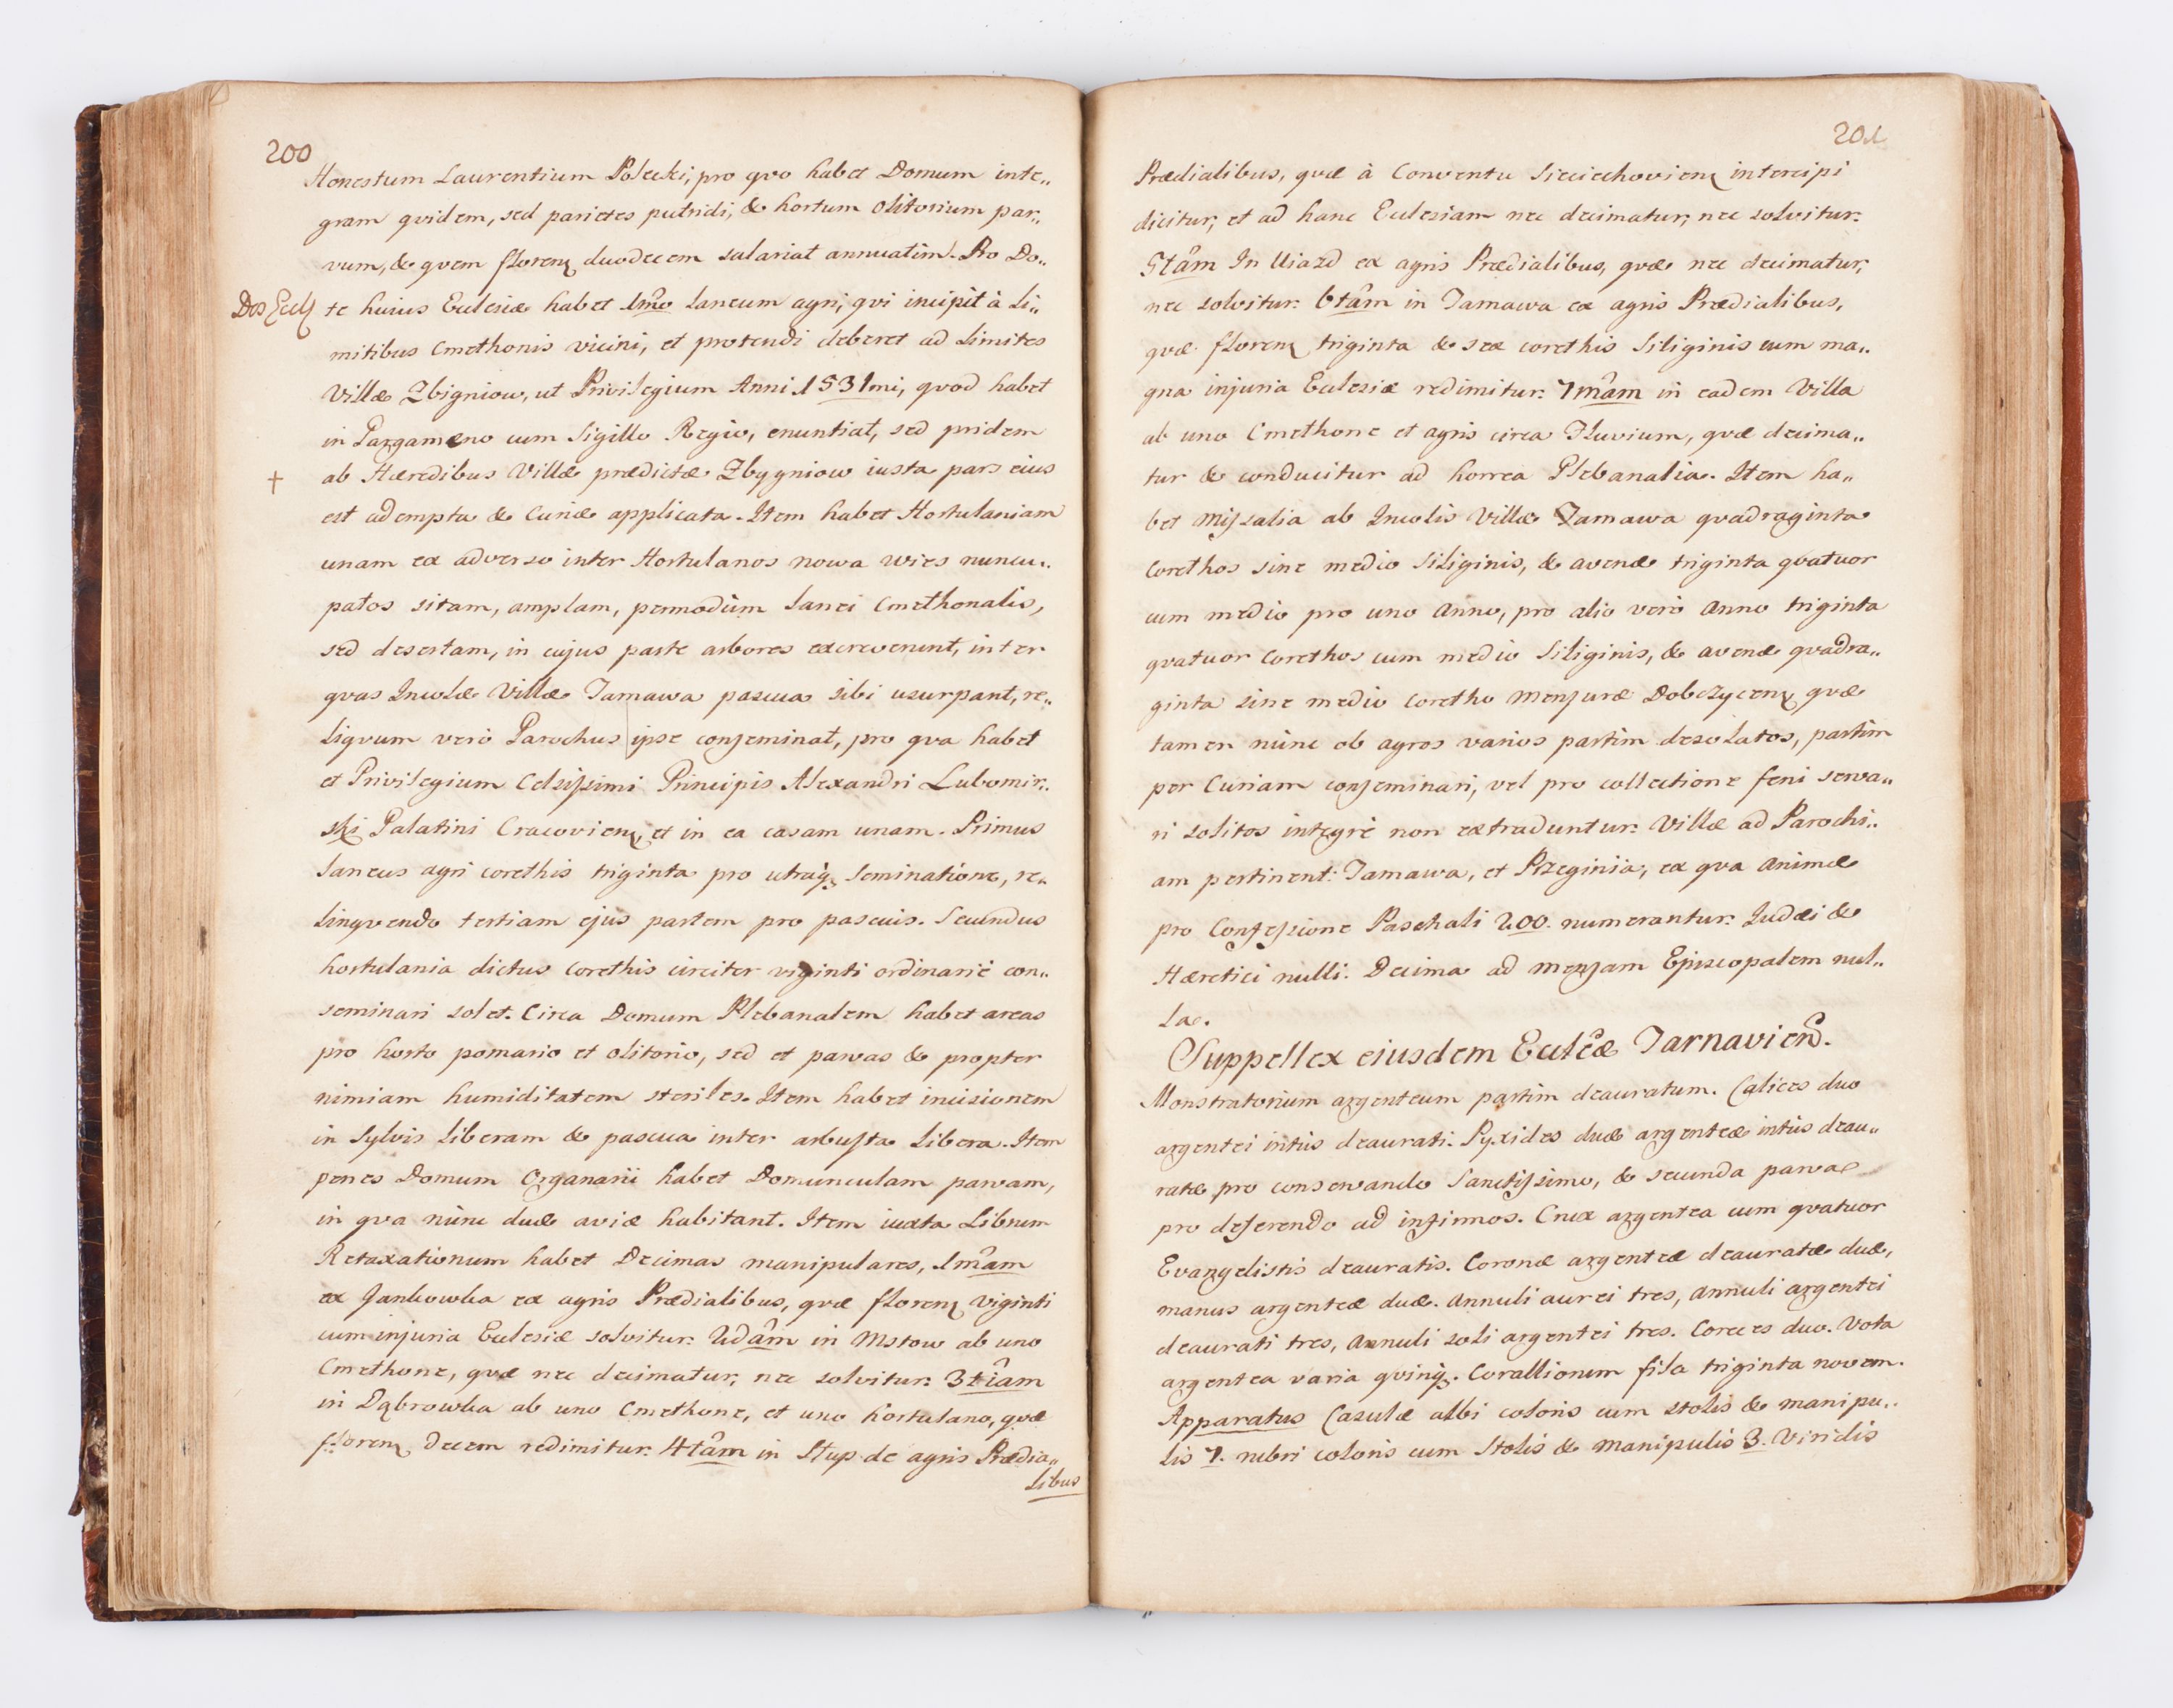 200
Honestum Laurentium Polecki, pro qvo habet Domum inte„
gram qvidem, sed parietes putridi, & hortum olitorium par„
vum, & qvem floren. duodecem salariat annuatim. Pro Do„
Dos Eccl. te huius Ecclesiæ habet 1mo Laneum agri, qvi incipit à Li„
mitibus Cmethonis vicini, et protendi deberet ad Limites
Villæ Zbigniow, ut Privilegium Anni 1531mi, qvod habet
in Pargameno cum Sigillo Regio, enuntiat, sed pridem
+ ab Hæredibus Villæ prædictæ Zbygniow iusta pars eius
est adempta & Curiæ applicata. Item habet Hortulaniam
unam ex adverso inter Hortulanos nowa wies nuncu„
patos sitam, amplam, permodùm Lanei Cmethonalis,
sed desertam, in cujus parte arbores excreverunt, inter
qvas Incolæ Villæ Tarnawa pascua sibi usurpant, re„
liqvum verò Parochus ipse conseminat, pro qva habet
et Privilegium Celsissimi Principis Alexandri Lubomir„
ski Palatini Cracovien. et in ea casam unam. Primus
Laneus agri corethis triginta pro utraq. seminatione, re„
linqvendo tertiam ejus partem pro pascuis. Secundus
hortulania dictus corethis circiter viginti ordinariè con„
seminari solet. Circa Domum Plebanalem habet areas
pro horto pomario et olitorio, sed et parvas & propter
nimiam humiditatem steriles. Item habet incisionem
in Sylvis Liberam & pascua inter arbusta Libera. Item
penes Domum Organarii habet Domunculam parvam,
in qva nùnc duæ aviæ habitant. Item iuxta Librum
Retaxationum habet Decimas manipulares, 1mâm
ex Jankowka ex agris Prædialibus, qvæ floren. Viginti
cum injuria Ecclesiæ solvitur. 2dâm in Mstow ab uno
Cmethone, qvæ nec decimatur, nec solvitur. 3tiâm
in Dąbrowka ab uno Cmethone, et uno hortulano, qvæ
floren. Decem redimitur. 4tâm in Stup de agris Prædia„
libus
201
Prædialibus, qvæ à Conventu Sieciechovien. intercipi
dicitur, et ad hanc Ecclesiam nec decimatur, nec solvitur.
5tâm In Uiazd ex agris Prædialibus, qvæ nec decimatur,
nec solvitur. 6tâm in Tarnawa ex agris Prædialibus,
qvæ floren. triginta & sex corethis Siliginis cum ma„
gna injuria Ecclesiæ redimitur. 7mâm in eadem Villa
ab uno Cmethone et agris circa Fluvium, qvæ decima„
tur & conducitur ad horrea Plebanalia. Item ha„
bet Missalia ab Incolis Villæ Tarnawa qvadraginta
Corethos sine medio Siliginis, & avenæ triginta qvatuor
cum medio pro uno Anno, pro alio verò Anno triginta
qvatuor Corethos cum medio Siliginis, & avenæ qvadra„
ginta sine medio Coretho Mensuræ Dobczycen. qvæ
tamen nùnc ob agros varios partim desolatos, partim
per Curiam conseminari, vel pro collectione feni serva„
ri solitos integrè non extraduntur. Villæ ad Parochi„
am pertinent: Tarnawa, et Przeginiia, ex qva Animæ
pro Confessione Paschali 200. numerantur. Judæi &
Hæretici nulli. Decima ad Mensam Episcopalem nul„
la.
Suppellex eiusdem Eccleæ Tarnavien.
Monstratorium argenteum partim deauratum. Calices duo
argentei intùs deaurati. Pyxides duæ argenteæ intùs deau„
ratæ pro conservando Sanctissimo, & secunda parva
pro deferendo ad infirmos. Crux argentea cum qvatuor
Evangelistis deauratis. Coronæ argenteæ deauratæ duæ,
manus argenteæ duæ. Annuli aurei tres, Annuli argentei
deaurati tres, Annuli soli argentei tres. Corces duo. Vota
argentea varia qvinq. Corallionum fila triginta novem.
Apparatus Casulæ albi coloris cum stolis & manipu„
lis 7. rubri coloris cum Stolis & manipulis 3. Viridis